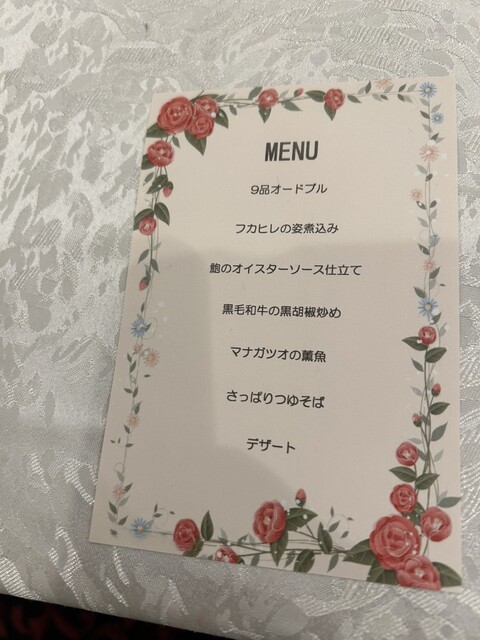 MENU
9品オードブル
フカヒレの姿煮込み
鮑のオイスターソース仕立て
黒毛和牛の黒胡椒炒め
マナガツオの薫魚
さっぱりつゆそば
デザート